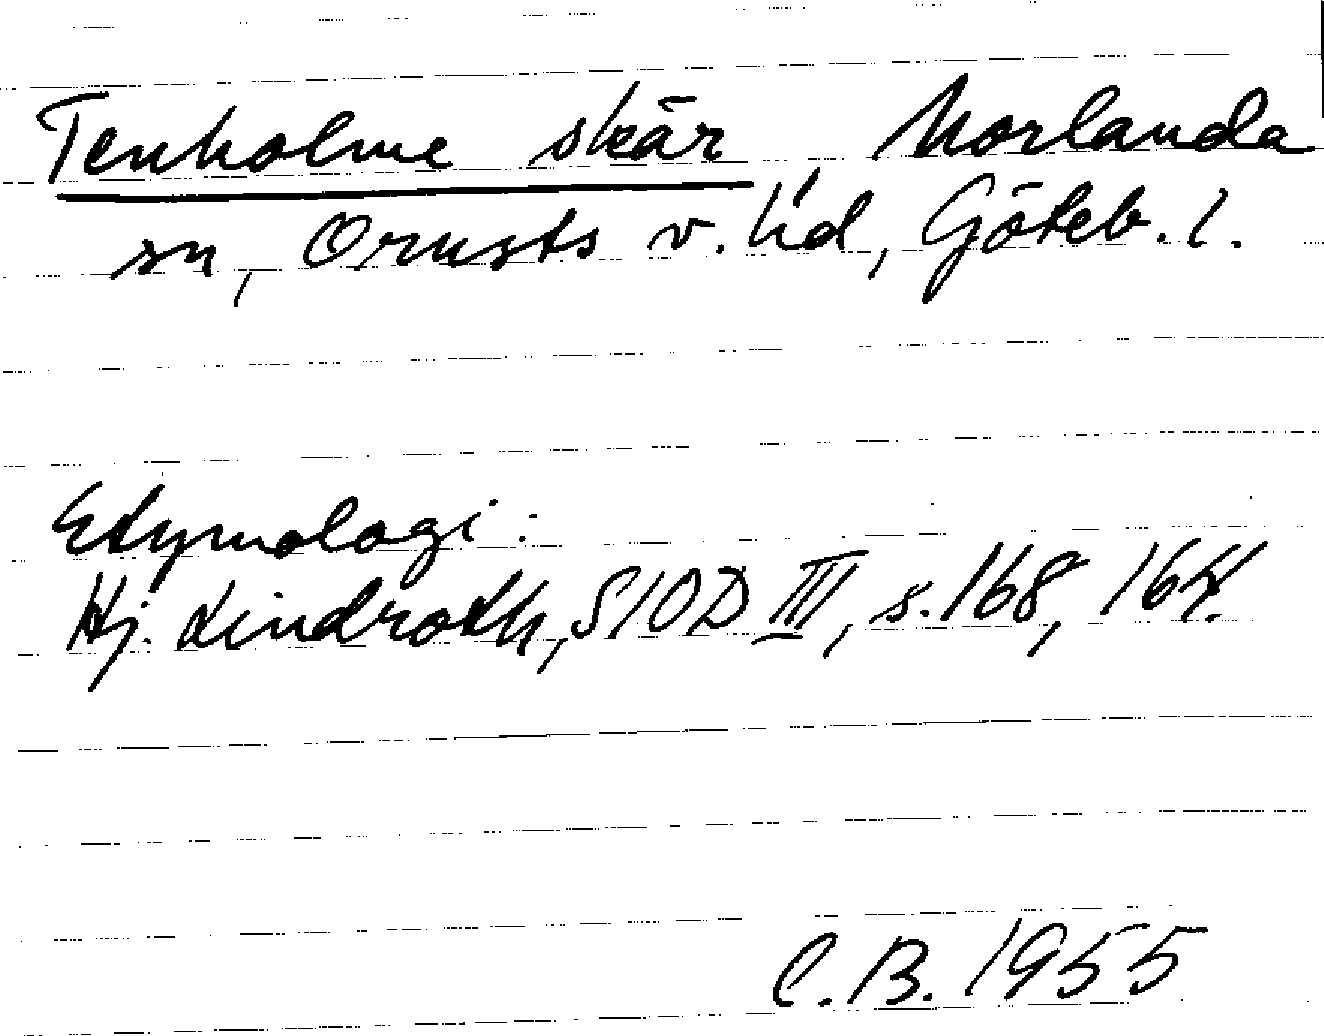 Tenholme skär Morlanda
sn, Orusts v. hd, Göteb. l.
Etymologi:
Hj. Lindroth, SIOD III, s. 168, 164.
C.B. 1955